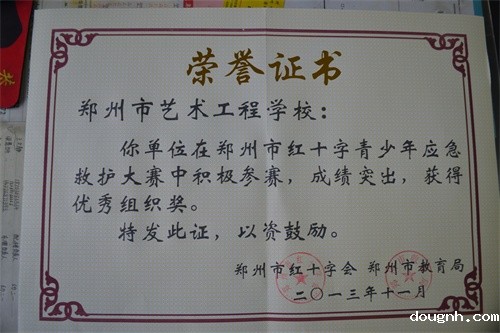 荣誉证书
郑州市艺术工程学校：
你单位在郑州市红十字青少年应急
救护大赛中积极参赛，成绩突出，获得
优秀组织奖。
特发此证，以资鼓励。
郑州市红十字会 郑州市教育局
二〇一三年十一月
dougnh.com